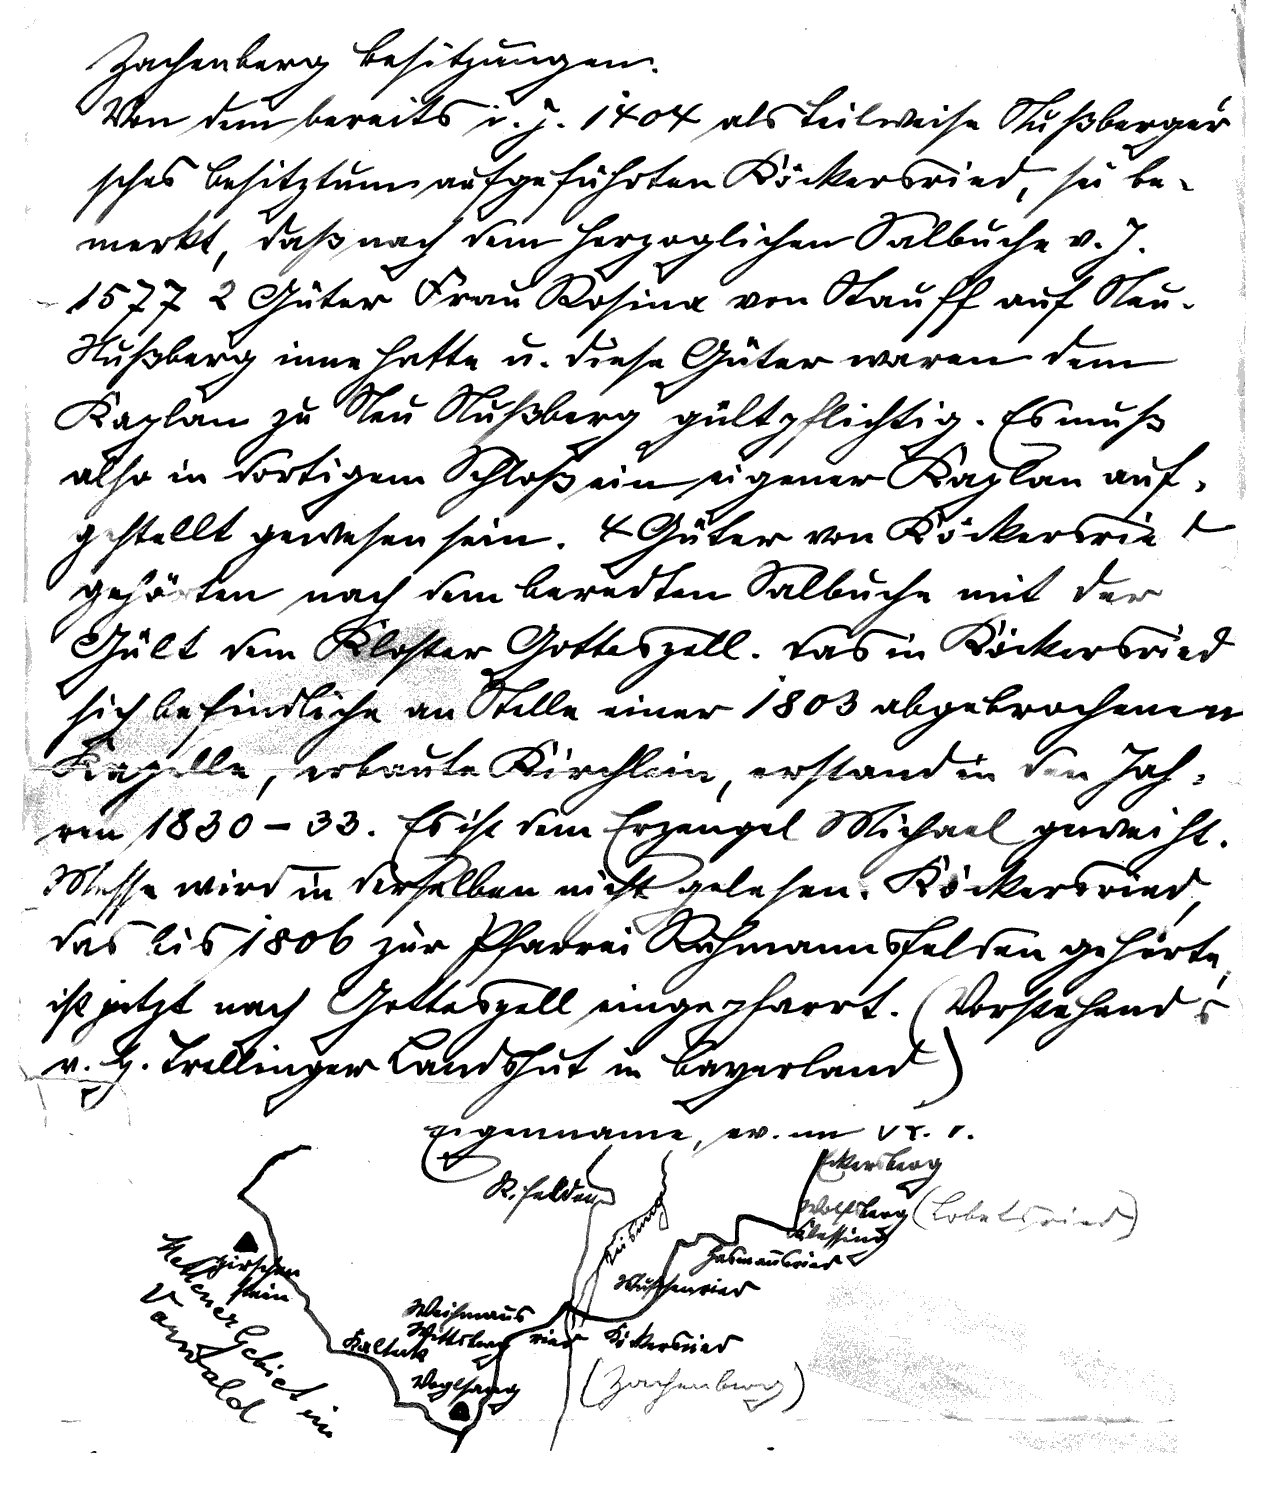 Zachenberg Besitzungen.
Von dem bereits i. J. 1404 als teilweise Nußberger
sches Besitztum aufgeführten Köckersried, sei be-
merkt, daß nach dem herzoglichen Salbuche v. J.
1577 2 Güter Frau Rosina von Stauff auf Neu-
Nußberg inne hatte u. diese Güter waren dem
Kaplan zu Neu Nußberg gültpflichtig. Es muß
also in dortigem Schloß ein eigener Kaplan auf-
gestellt gewesen sein. 4 Güter von Köckersried
gehörten nach dem beredten Salbuche mit der
Gült dem Kloster Gotteszell. Das in Köckersried
sich befindliche an Stelle einer 1803 abgebrochenen
Kapelle, erbaute Kirchlein, erstand in den Jah-
ren 1830 – 33. Es ist dem Erzengel Michael geweiht.
Messe wird in derselben nicht gelesen. Köckersried,
das bis 1806 zur Pfarrei Ruhmannsfelden gehörte,
ist jetzt nach Gotteszell eingepfarrt. (Vorstehendes
v. H. Trellinger Landshut in Bayerland)
Eigenname, erw. im
Eckersberg
R. felden
Wolfsberg (Lobetsried)
Klessing
Hasmannsried
Hirschen
stein
Mettener Gebiet im
Vorwald
Weihmannsried
Wittsberg
Köckersried
Kalteck
Voglsang
(Zachenberg)